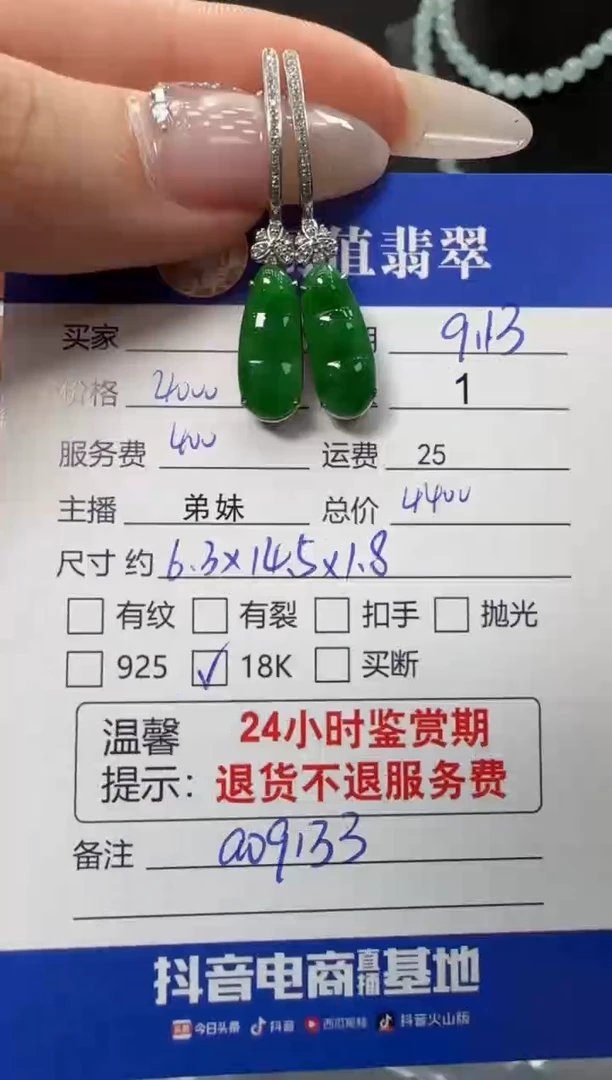 值翡翠
买家
期 9.13
价格 4000
1
服务费 400 运费 25
主播 弟妹 总价 4400
尺寸 约 6.3x14.5x1.8
有纹 有裂 扣手 抛光
925 ✓ 18K 买断
温馨 24小时鉴赏期
提示: 退货不退服务费
备注 a09133
抖音电商直播基地
头条 今日头条 抖音 西瓜视频 抖音火山版